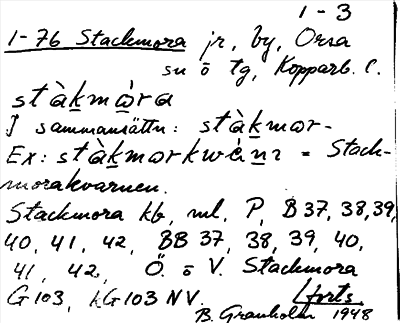 1-3
1-76 Stackmora jr, by, Orsa
sn o tg, Kopparb. l.
stàkmòra
I sammansättn: stàkmor-
Ex: stàkmorkwànɪ = Stack-
morakvarnen.
Stackmora kb, ml, P, B 37, 38, 39,
40, 41, 42, BB 37, 38, 39, 40,
41, 42, Ö. o V. Stackmora
G 103, hG 103 NV. forts.
B. Granholm 1948